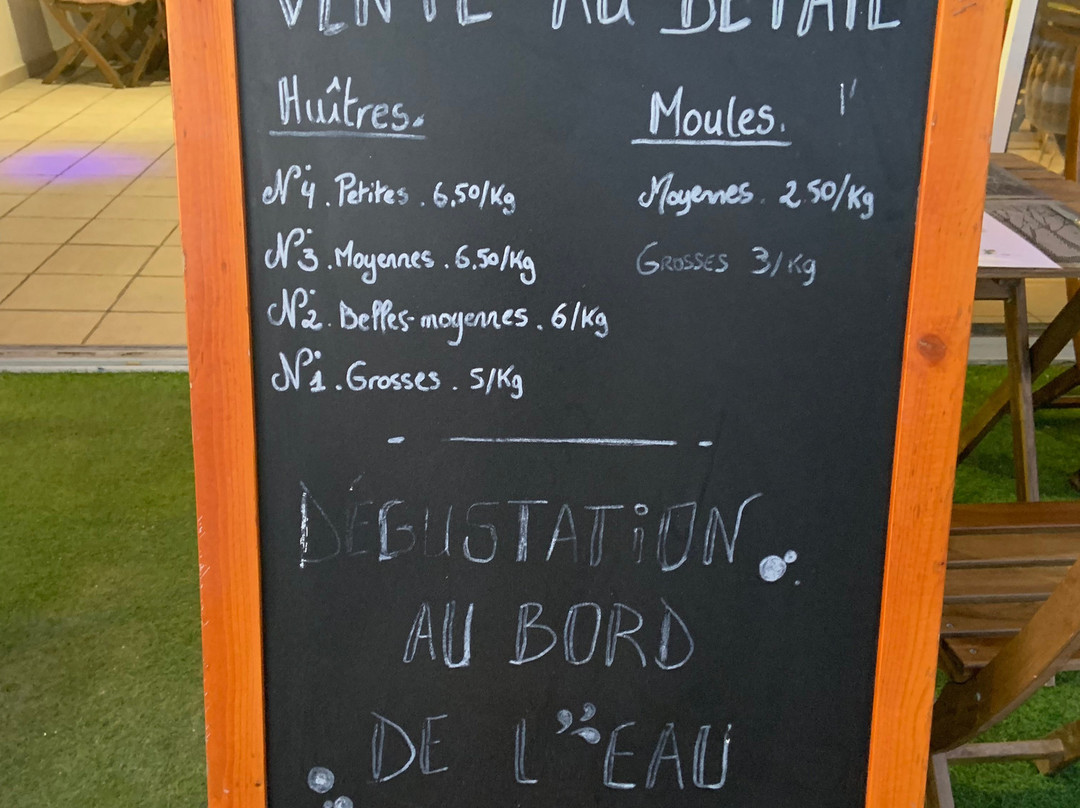 VENTE AU DÉTAIL
Huîtres.
N°4. Petites. 6,50/Kg
N°3. Moyennes. 6,50/Kg
N°2. Belles-moyennes. 6/Kg
N°1. Grosses. 5/Kg
Moules.
Moyennes. 2.50/Kg
GROSSES 3/Kg
DÉGUSTATION
AU BORD
DE L'EAU